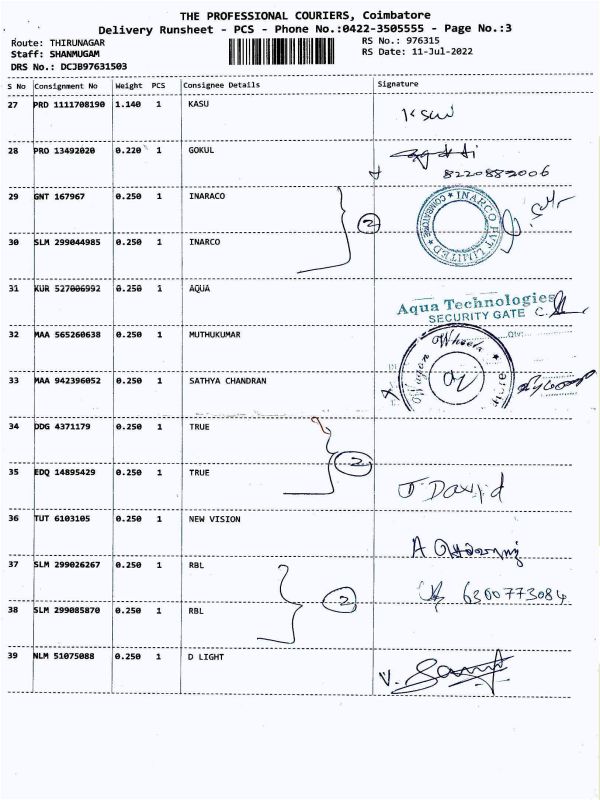 THE PROFESSIONAL COURIERS, Coimbatore
Delivery Runsheet - PCS - Phone No.:0422-3505555 - Page No.:3
Route: THIRUNAGAR RS No.: 976315
Staff: SHANMUGAM RS Date: 11-Jul-2022
DRS No.: DCJB97631503
S No Consignment No Weight PCS Consignee Details Signature
27 PRD 1111708190 1.140 1 KASU
28 PRO 13492020 0.220 1 GOKUL
8220882006
29 GNT 167967 0.250 1 INARACO
2
INARCO PVT LIMITED * COIMBATORE *
30 SLM 299044985 0.250 1 INARCO
31 KUR 527006992 0.250 1 AQUA
Aqua Technologies
SECURITY GATE
32 MAA 565260638 0.250 1 MUTHUKUMAR
Qty:
Wagon Wheels
33 MAA 942396052 0.250 1 SATHYA CHANDRAN
34 DDG 4371179 0.250 1 TRUE
2
35 EDQ 14895429 0.250 1 TRUE
J David
36 TUT 6103105 0.250 1 NEW VISION
37 SLM 299026267 0.250 1 RBL
2 6300773084
38 SLM 299085870 0.250 1 RBL
39 NLM 51075088 0.250 1 D LIGHT